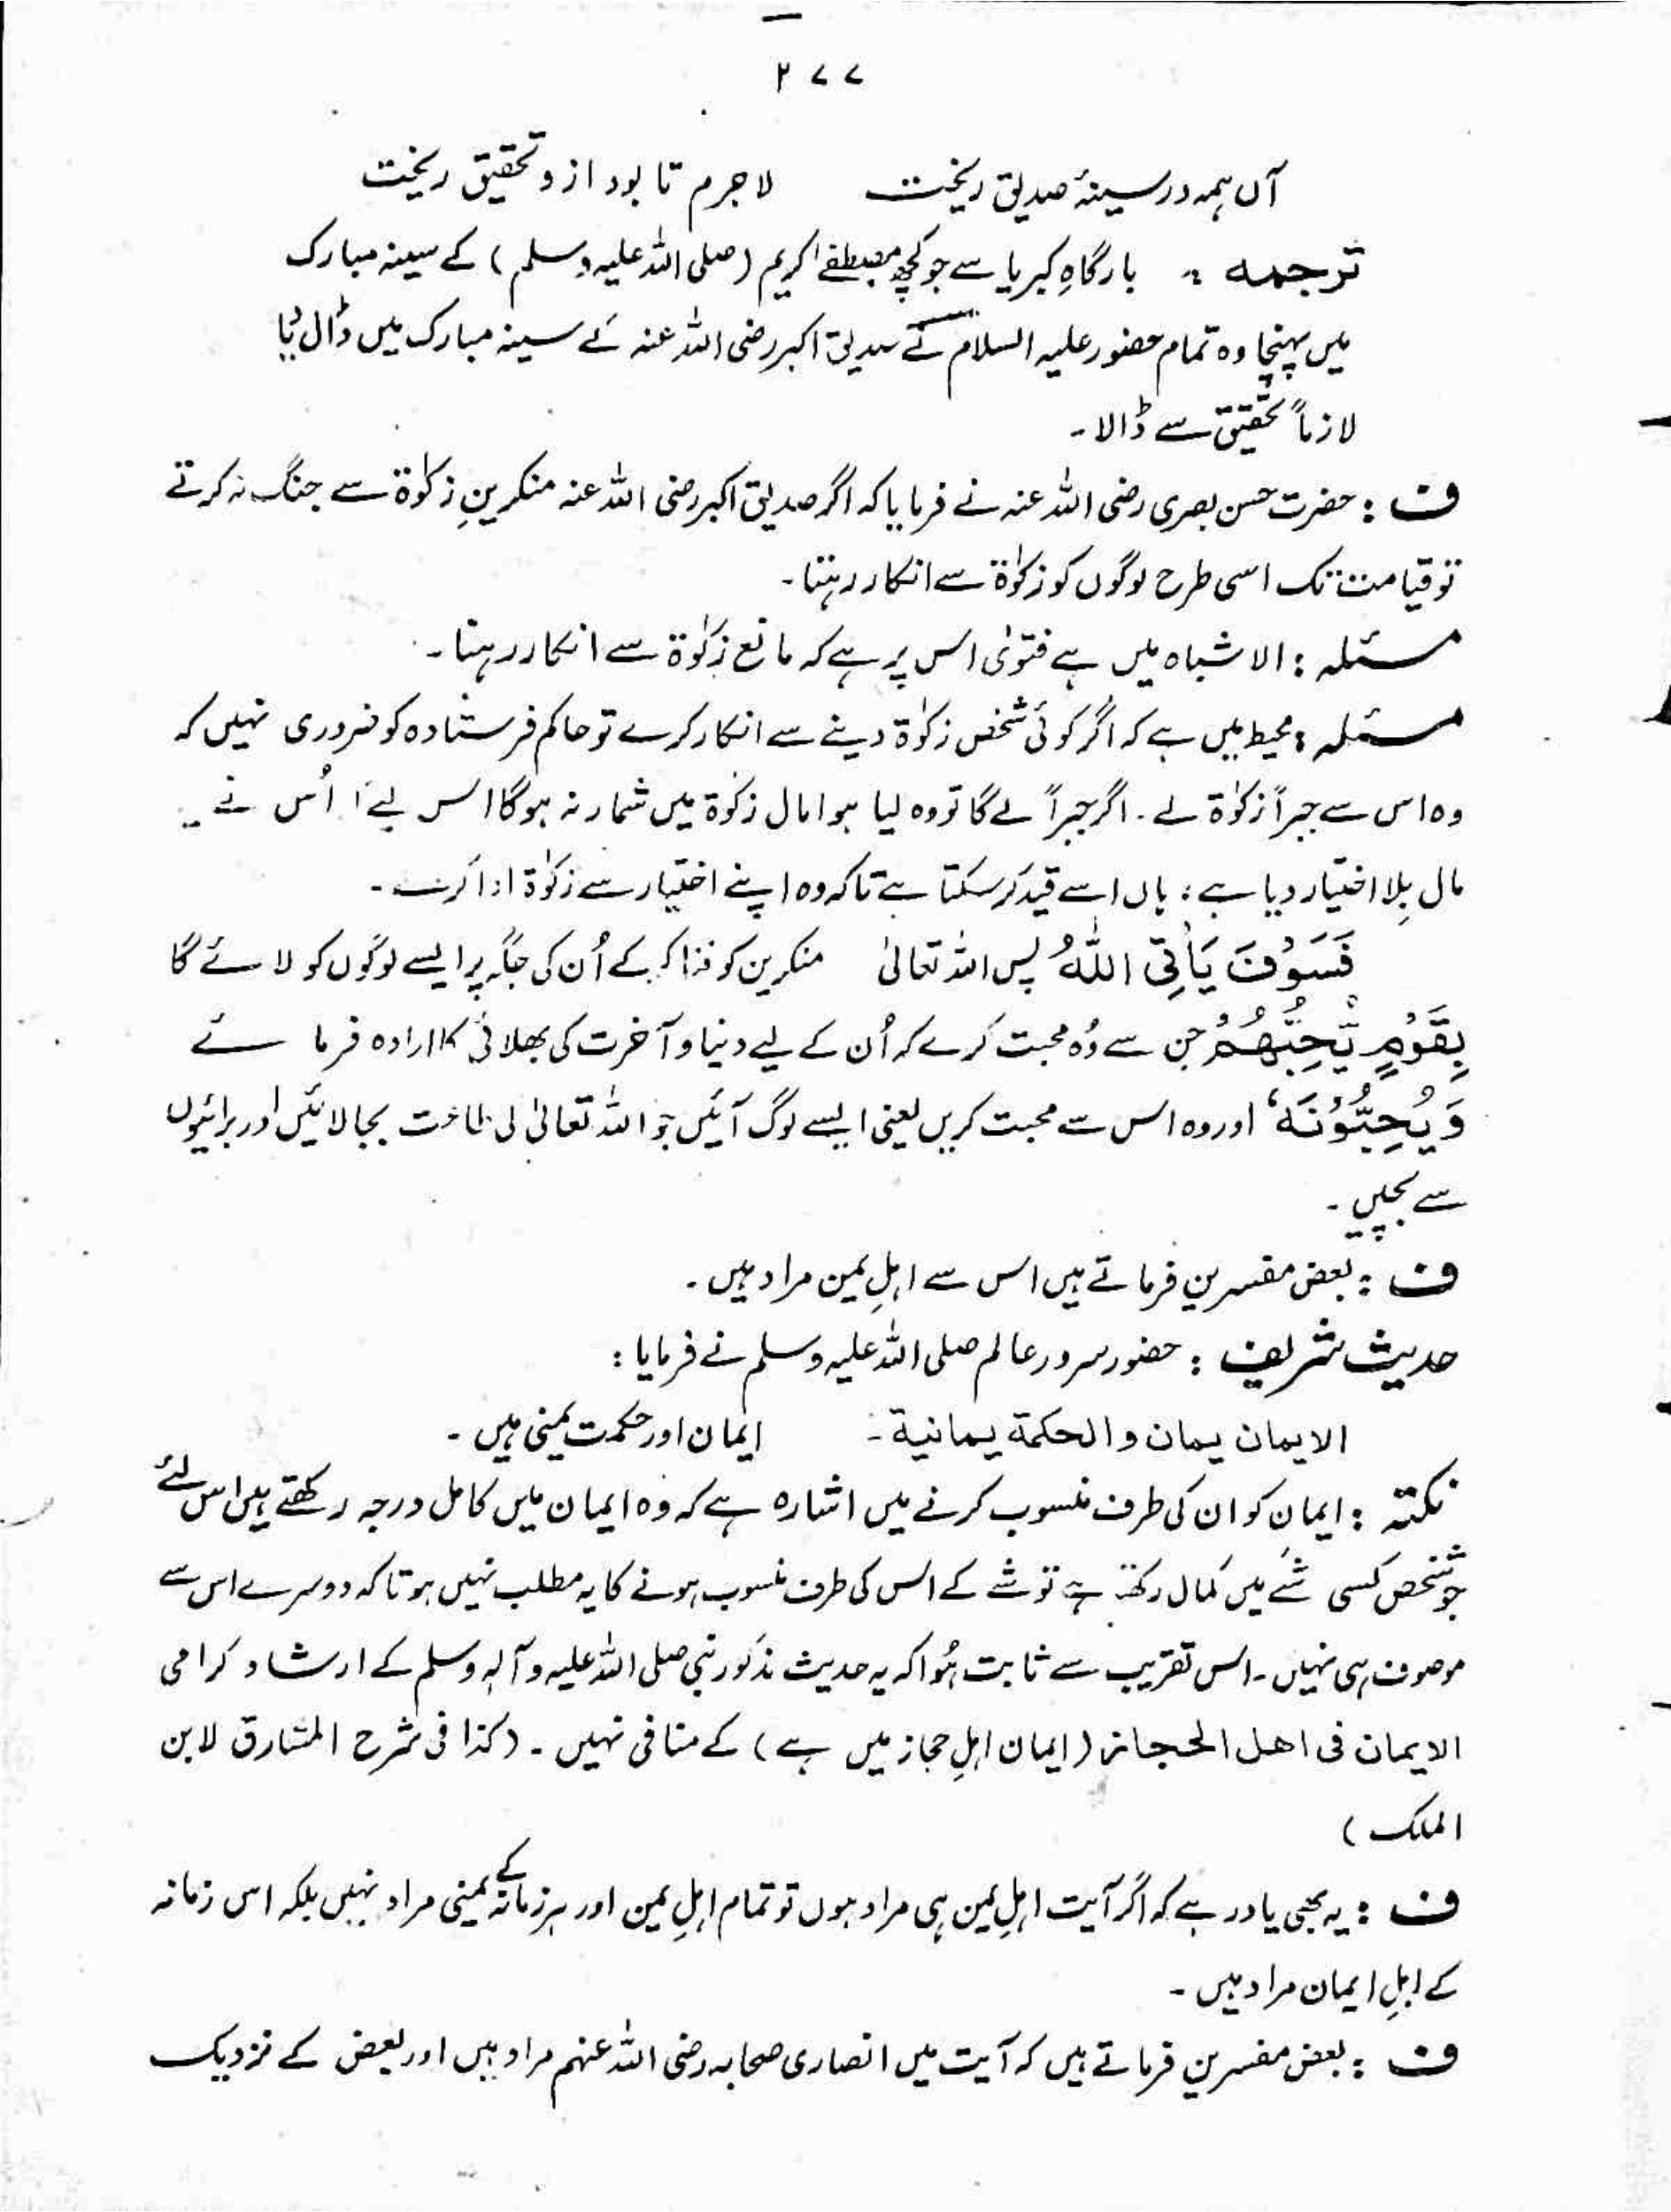 ۲۷۷
آں ہمہ در سینۂ صدیق ریخت لاجرم تا بود ازو تحقیق ریخت
ترجمہ : بارگاہِ کبریا سے جو کچھ مصطفےٰ کریم (صلی اللہ علیہ وسلم) کے سینہ مبارک
میں پہنچا وہ تمام حضور علیہ السلام نے صدیق اکبر رضی اللہ عنہ کے سینہ مبارک میں ڈال دیا
لازماً تحقیق سے ڈالا۔
ف : حضرت حسن بصری رضی اللہ عنہ نے فرمایا کہ اگر صدیق اکبر رضی اللہ عنہ منکرینِ زکوٰۃ سے جنگ نہ کرتے
تو قیامت تک اسی طرح لوگوں کو زکوٰۃ سے انکار رہتا۔
مسئلہ : الاشباہ میں ہے فتویٰ اس پر ہے کہ مانع زکوٰۃ سے انکار رہتا۔
مسئلہ : محیط میں ہے کہ اگر کوئی شخص زکوٰۃ دینے سے انکار کرے تو حاکم فرستادہ کو ضروری نہیں کہ
وہ اس سے جبراً زکوٰۃ لے۔ اگر جبراً لے گا تو وہ لیا ہوا مال زکوٰۃ میں شمار نہ ہوگا اس لیے اُس نے
مال بِلا اختیار دیا ہے، ہاں اسے قید کر سکتا ہے تاکہ وہ اپنے اختیار سے زکوٰۃ ادا کرے۔
فَسَوْفَ یَأْتِی اللّٰهُ پس اللہ تعالیٰ منکرین کو فنا کر کے اُن کی جگہ پر ایسے لوگوں کو لائے گا
بِقَوْمٍ یُّحِبُّهُمْ جن سے وُہ محبت کرے کہ اُن کے لیے دنیا و آخرت کی بھلائی کا ارادہ فرمائے
وَ یُحِبُّوْنَهٗ اور وہ اس سے محبت کریں یعنی ایسے لوگ آئیں جو اللہ تعالیٰ کی طاعت بجا لائیں اور برائیوں
سے بچیں۔
ف : بعض مفسرین فرماتے ہیں اس سے اہلِ یمن مراد ہیں۔
حدیث شریف : حضور سرور عالم صلی اللہ علیہ وسلم نے فرمایا :
الایمان یمان والحکمة یمانیة۔ ایمان اور حکمت یمنی ہیں۔
نکتہ : ایمان کو ان کی طرف منسوب کرنے میں اشارہ ہے کہ وہ ایمان میں کامل درجہ رکھتے ہیں اس لئے
جو شخص کسی شے میں کمال رکھتا ہے تو شے کے اس کی طرف منسوب ہونے کا یہ مطلب نہیں ہوتا کہ دوسرے اس سے
موصوف ہی نہیں۔ اس تقریب سے ثابت ہُوا کہ یہ حدیث مذکور نبی صلی اللہ علیہ وآلہٖ وسلم کے ارشاد گرامی
الایمان فی اهل الحجاز (ایمان اہلِ حجاز میں ہے) کے منافی نہیں۔ (کذا فی شرح المشارق لابن
الملک)
ف : یہ بھی یاد رہے کہ اگر آیت اہلِ یمن ہی مراد ہوں تو تمام اہلِ یمن اور ہر زمانہ کے یمنی مراد نہیں بلکہ اس زمانہ
کے اہلِ ایمان مراد ہیں۔
ف : بعض مفسرین فرماتے ہیں کہ آیت میں انصاری صحابہ رضی اللہ عنہم مراد ہیں اور بعض کے نزدیک